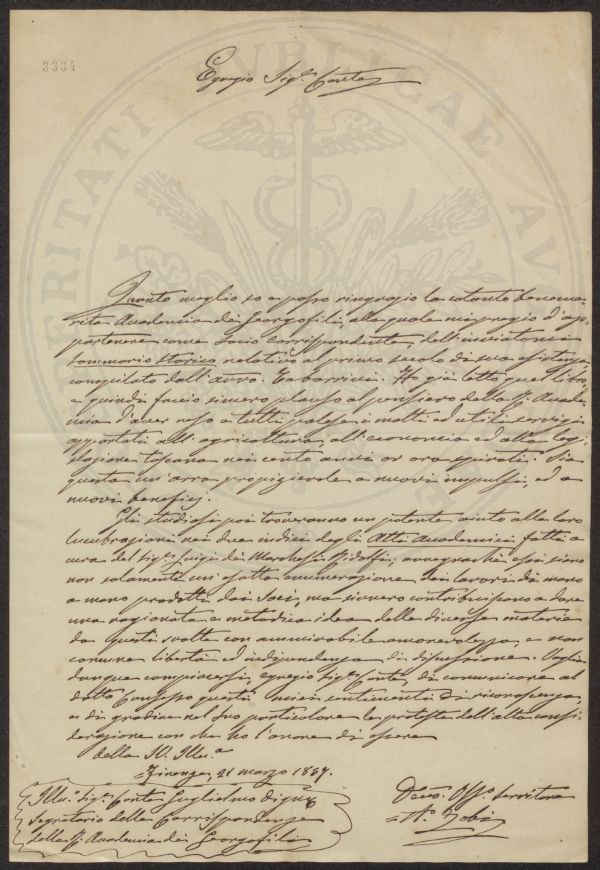 3334
Egregio Sig.r Conte
Quanto meglio so e posso ringrazio la cotanto beneme-
rita Accademia dei Georgofili, alla quale mi pregio d'ap-
partenere come socio corrispondente, dell'inviatomi
sommario storico relativo al primo secolo di sua esistenza
compilato dall'avvo. Tabarrini. Ho già letto quel libro,
e quindi faccio sincero plauso al pensiero della R. Accade-
mia d'aver reso a tutti palese i molti ed utili servigi
apportati all'agricoltura, all'economia ed alla legi-
slazione toscana nei cento anni or ora spirati. Sia
questa un'arra propizievole a nuovi impulsi, ed a
nuovi benefizj.
Gli studiosi poi troveranno un potente aiuto alle loro
lucubrazioni nei due indici degli Atti Accademici fatti a
cura del Sig.r Luigi dei Marchesi Ridolfi, avvegnachè essi siano
non solamente un'esatta enumerazione dei lavori di mano
a mano prodotti dai Soci, ma sivvero contribuiscono a dare
una ragionata e metodica idea delle diverse materie
da questi svolte con ammirabile amorevolezza, e non
comune libertà ed indipendenza di discussione. Voglia
dunque compiacersi, egregio Sig.r Conte, di comunicare al
dotto Consesso questi miei sentimenti di riconoscenza,
e di gradire nel suo particolare le proteste dell'alta consi-
derazione con che ho l'onore di essere
della SV. Illu.a
Firenze, 21 marzo 1857.
Illu.o Sig.r Conte Guglielmo
Segretario della Corrispondenza
della R. Accademia dei Georgofili
Devo. Obbo. servitore
A. Zobi
VERITATI PVBLICAE